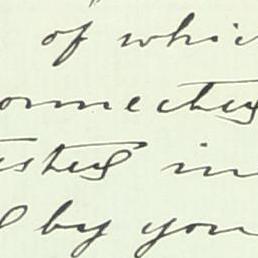 of whic
onnected
ested in
by you